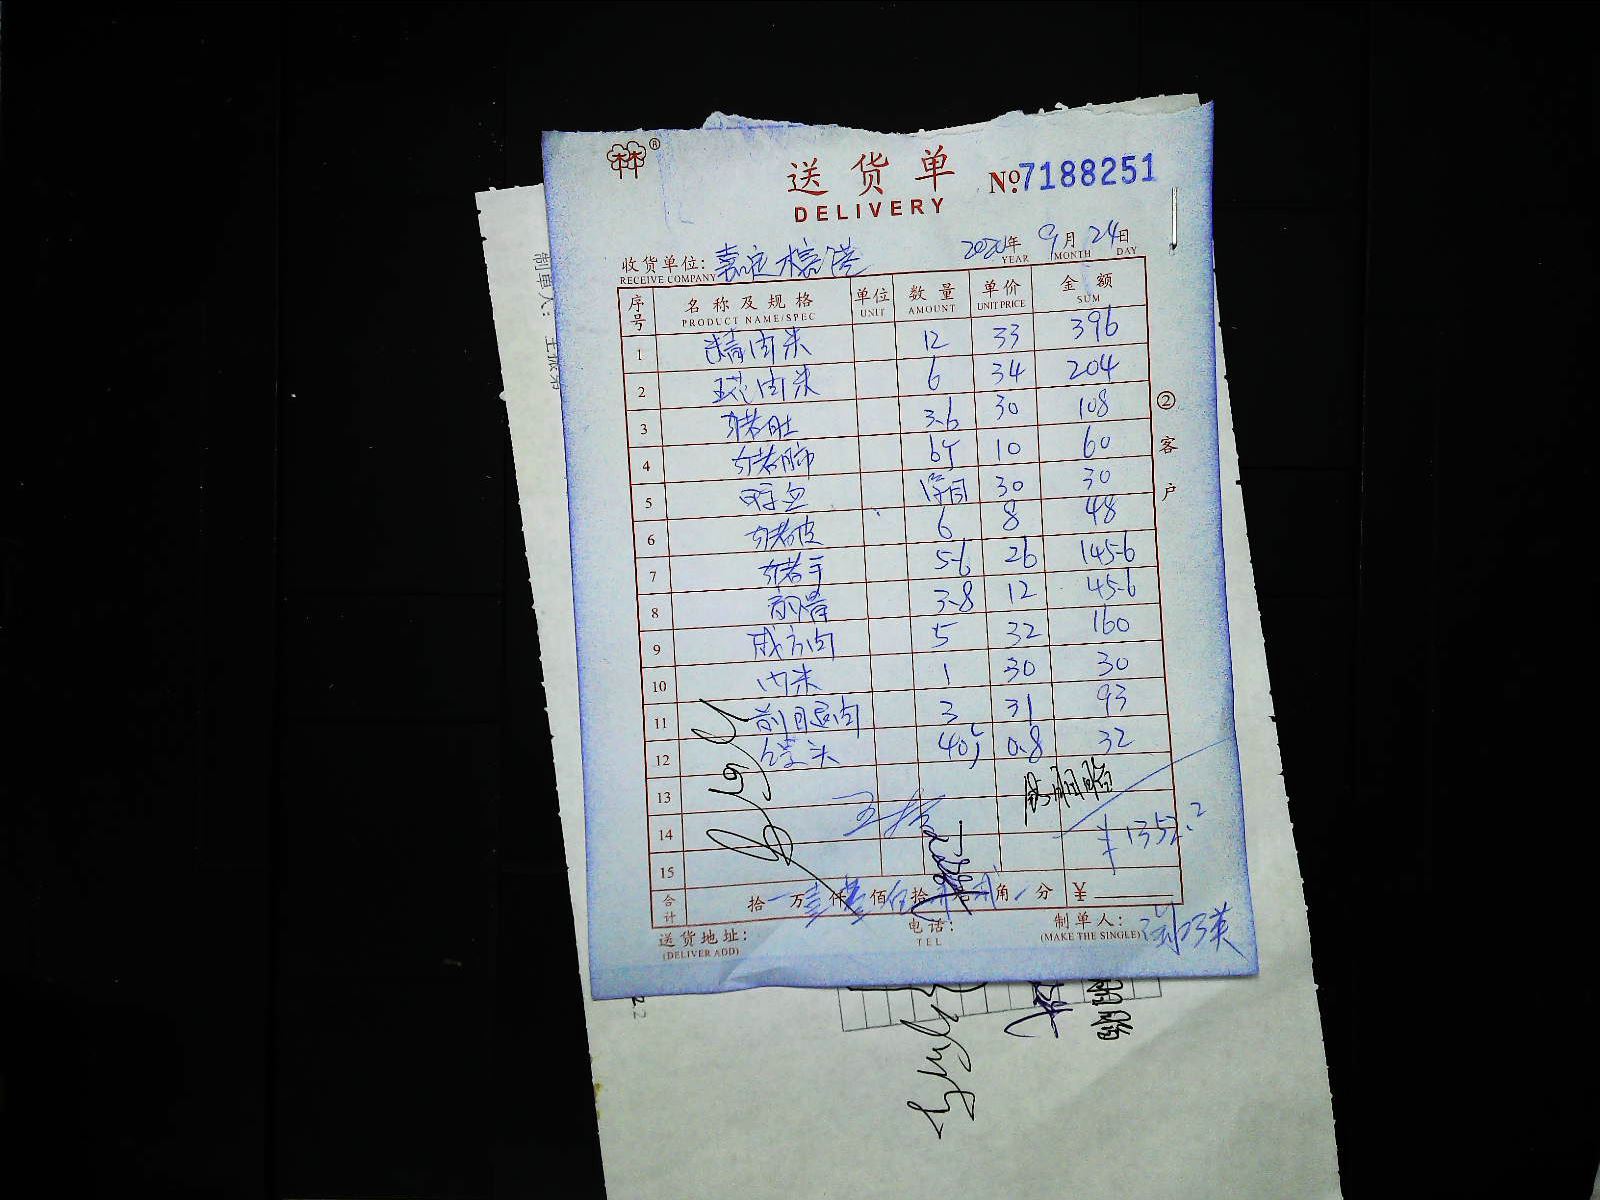 林®
送货单 №7188251
DELIVERY
收货单位: 嘉定 2020年 9月 24日
RECEIVE COMPANY YEAR MONTH DAY
序号 名称及规格 单位 数量 单价 金额
PRODUCT NAME/SPEC UNIT AMOUNT UNIT PRICE SUM
1 精肉米 12 33 396
2 肉米 6 34 204
3 猪肚 3.6 30 108
4 猪肺 6个 10 60
5 30 30
6 猪皮 6 8 48
7 猪手 5.6 26 145.6
8 前骨 3.8 12 45.6
9 成方肉 5 32 160
10 肉米 1 30 30
11 前腿肉 3 31 93
12 馒头 40个 0.8 32
13
14 ¥1352.2
15
合计 拾 万壹仟叁佰伍拾 角 分 ¥
送货地址: 电话: 制单人:
(DELIVER ADD) TEL (MAKE THE SINGLE)
②客户
制单人: